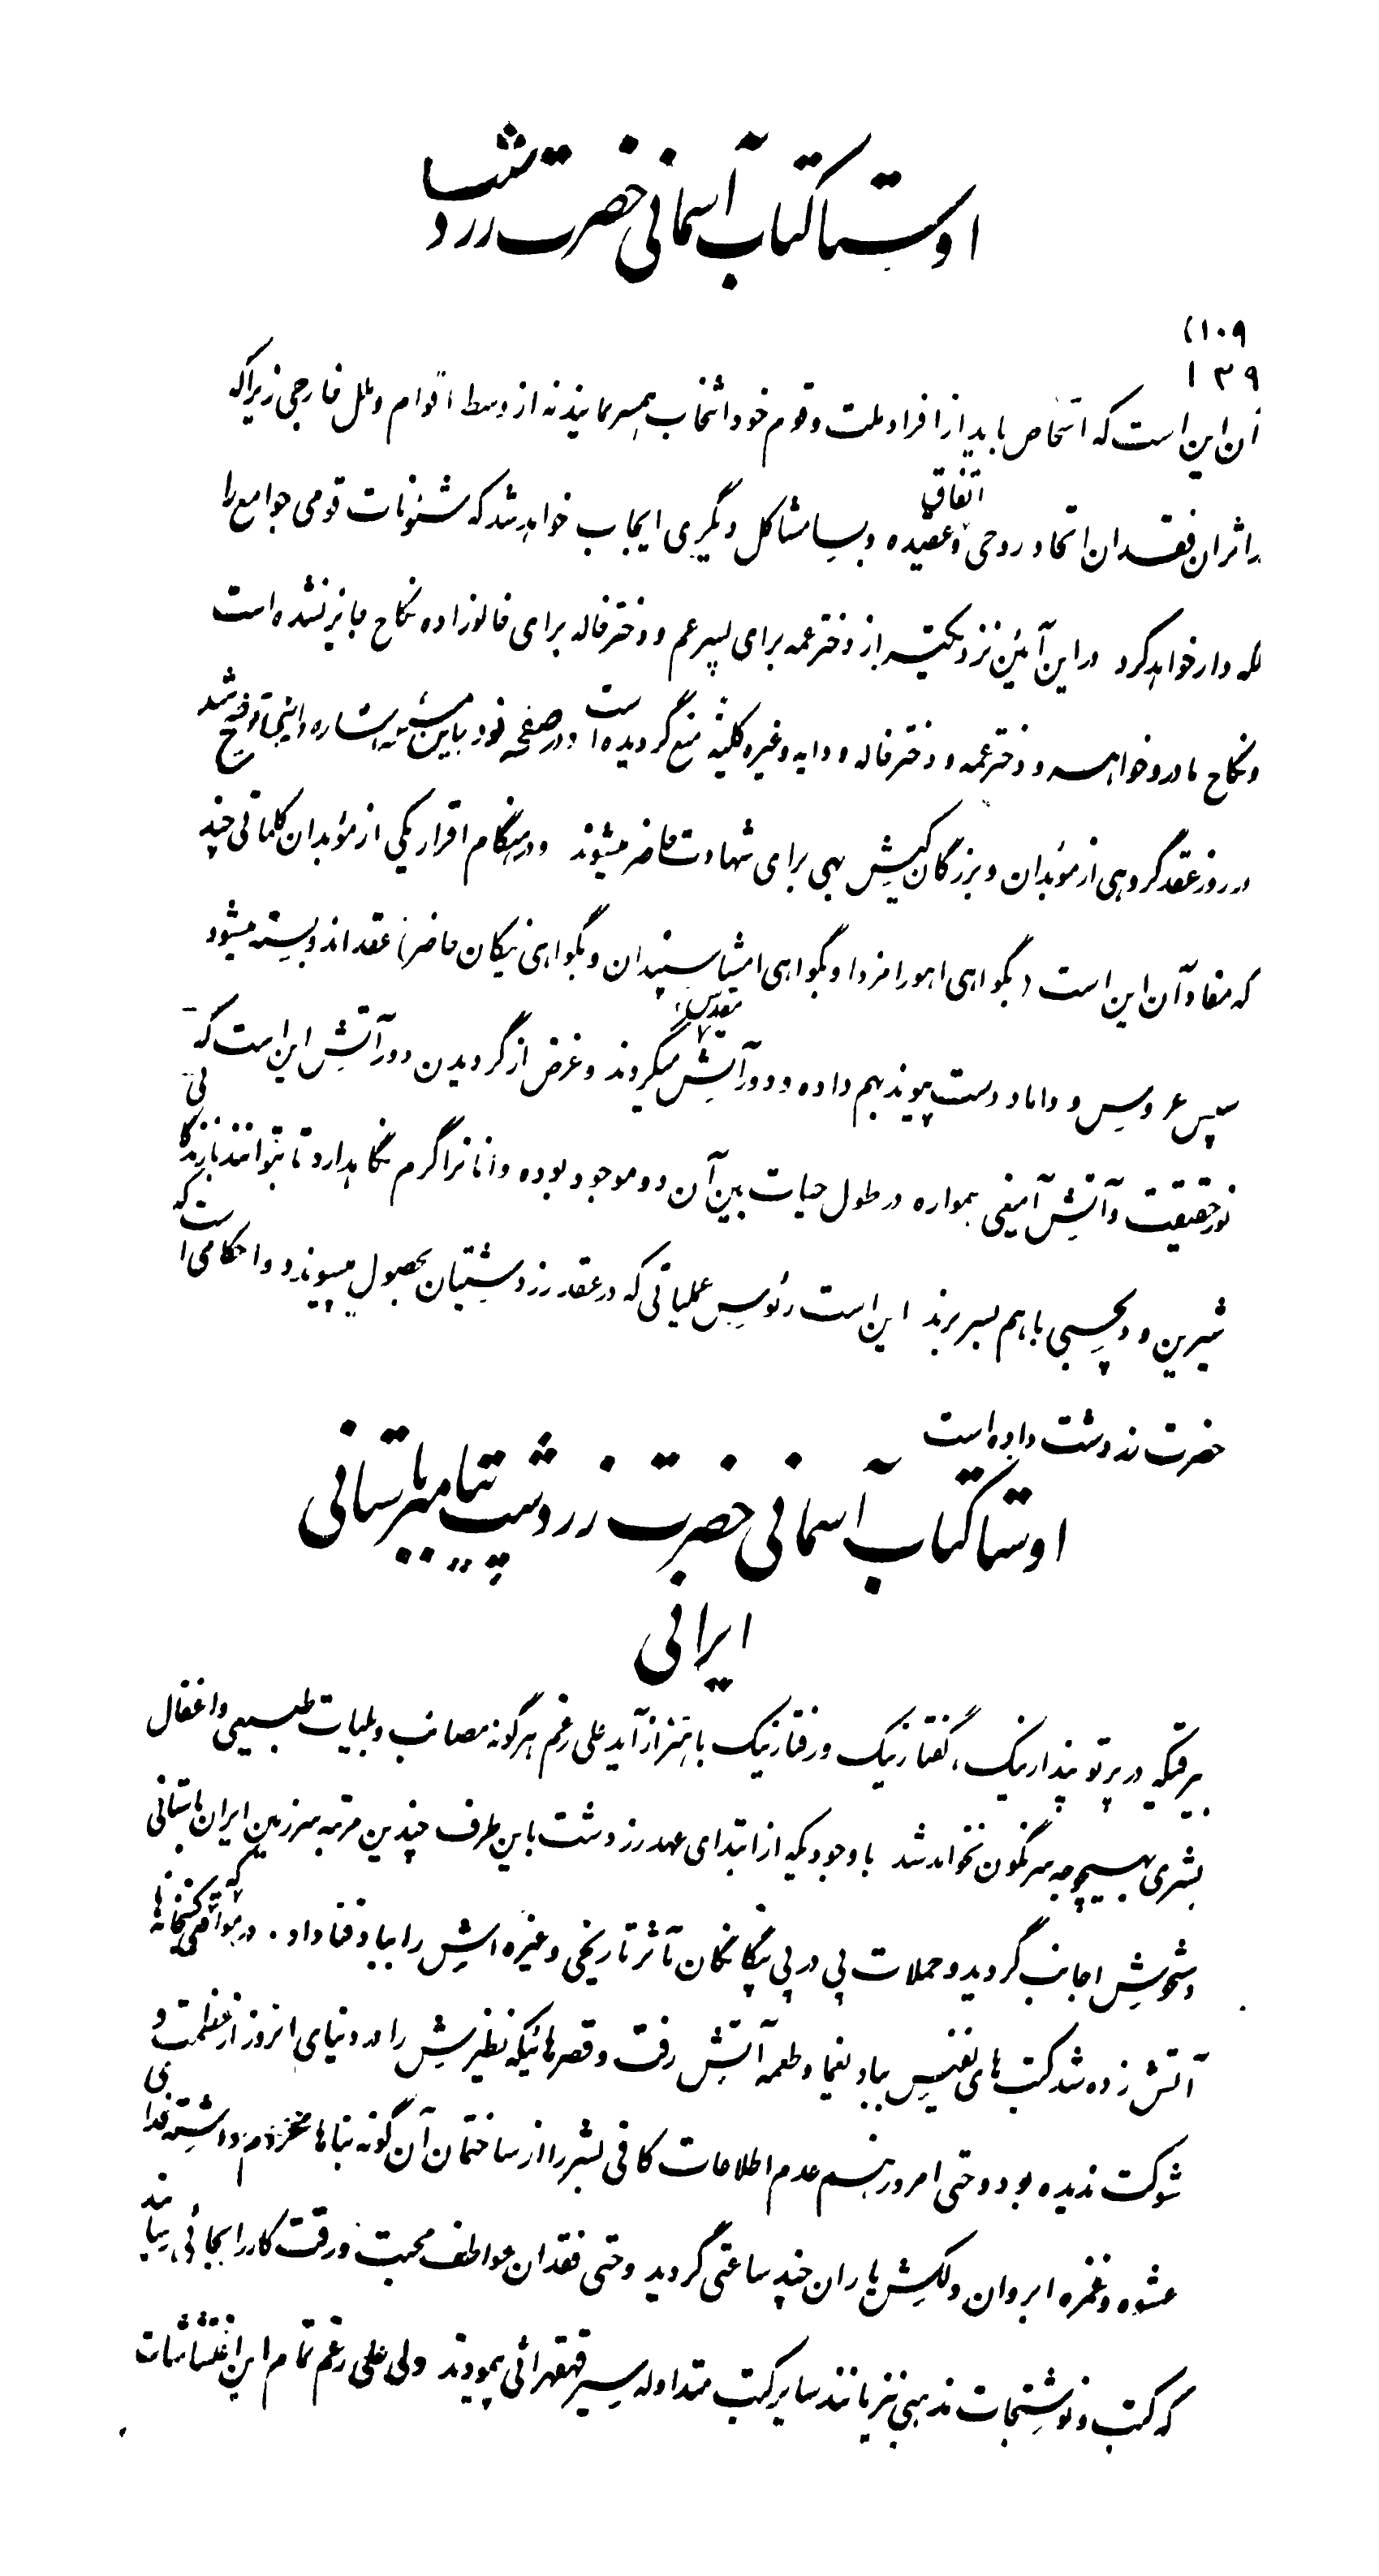 اوستا کتاب آسمانی حضرت زردشت
(۱۰۹
۱۳۹
آن این است که اشخاص باید از افراد ملت و قوم خود انتخاب همسر نمایند نه از وسط اقوام و ملل خارجی زیرا که
در اثر آن فقدان اتحاد روحی و اتفاق عقیده و بسا مشاکل دیگری ایجاب خواهد شد که شئونات قومی جوامع را
لکه دار خواهد کرد در این آئین نزدیکتر از دختر عمه برای پسر عم و دختر خاله برای خالوزاده نکاح جایز نشده است
و نکاح مادر و خواهر و دختر عمه و دختر خاله و دایه و غیره کلیةً منع گردیده است و در صفحه خود باین مسئله اشاره و اینجا توضیح شد
در روز عقد گروهی از مؤبدان و بزرگان کیش بهی برای شهادت حاضر میشوند و در هنگام اقرار یکی از مؤبدان کلماتی چند
که مفاد آن این است (بگواهی اهورامزدا و بگواهی امشاسپندان و بگواهی نیکان حاضر) عقد اندو بسته میشود
سپس عروس و داماد دست پیوند بهم داده و دور آتش مقدس میگردند و غرض از گردیدن دور آتش این است که
نور حقیقت و آتش همواره در طول حیات بین آن دو موجود بوده و آنانرا گرم نگاهدارد تا بتوانند با زندگانی
شیرین و دلچسبی با هم بسر برند این است رئوس عملیاتی که در عقد زردشتیان بحصول میپیوندد و احکامی است که
حضرت زردشت داده است
اوستا کتاب آسمانی حضرت زردشت پیامبر باستانی
ایرانی
بیرقیکه در پرتو پندار نیک، گفتار نیک و رفتار نیک باهتزاز آید علی رغم هرگونه مصائب و بلیات طبیعی و اغفال
بشری بهیچوجه سرنگون نخواهد شد با وجودیکه از ابتدای عهد زردشت باین طرف چندین مرتبه سرزمین ایران باستانی
دستخوش اجانب گردید و حملات پی در پی بیگانگان مآثر تاریخی و غیره اش را بباد فنا داد. در مواقعی که کتبخانه ها
آتش زده شد کتب های نفیس بباد یغما و طعمه آتش رفت و قصرهائیکه نظیرش را در دنیای امروز از عظمت و
شوکت ندیده بود و حتی امروز هم عدم اطلاعات کافی بشر را از ساختمان آن گونه بناها محروم داشته فدای
عشوه و غمزه ابروان دلکش یاران چند ساعتی گردید و حتی فقدان عواطف محبت و رقت کار را بجائی رسانید
که کتب و نوشتجات مذهبی نیز مانند سایر کتب متداوله سیر قهقرائی پیمودند ولی علی رغم تمام این اغتشاشات